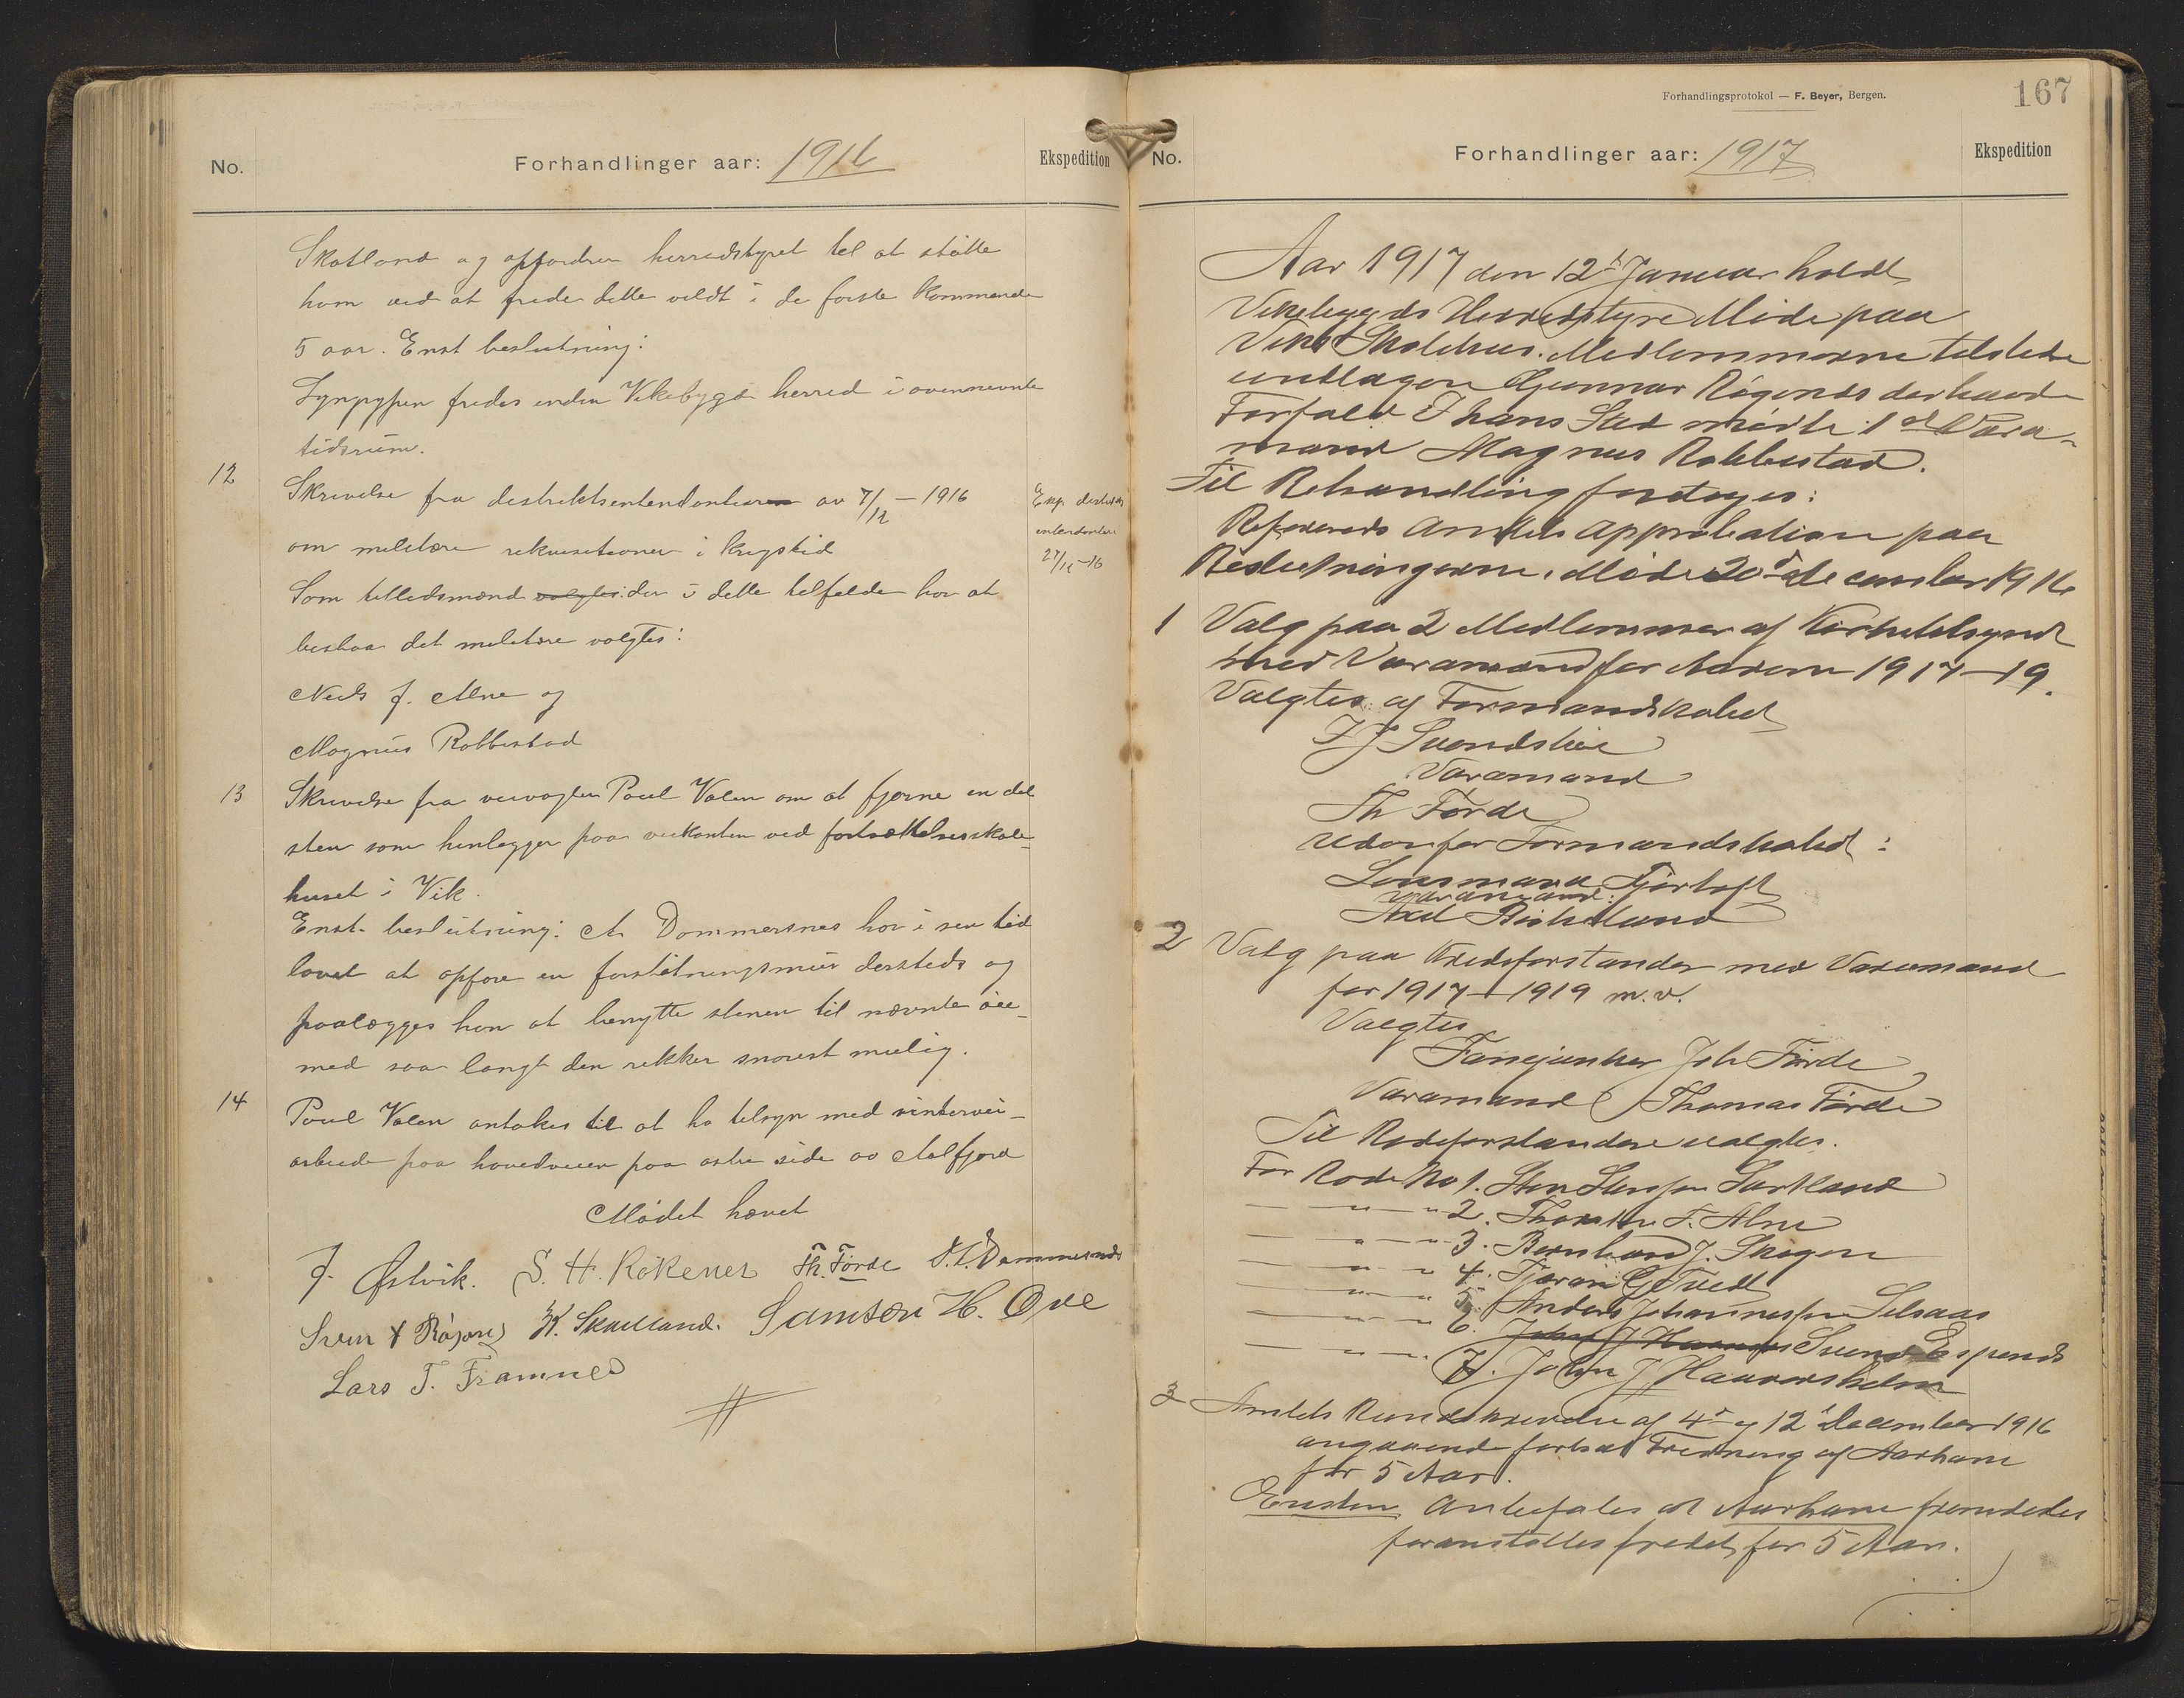 No.
Forhandlinger aar: 1916
Ekspedition
Skotland og opfordrer herredstyret til at støtte
ham ved at frede dette vildt i de første kommende
5 aar. Enst beslutning:
fredes inden Vikebygd herred i ovennevnte
tidsrum.
12
Skrivelse fra av 7/12 – 1916
om militære rekvisitioner i krigstid
Som tillidsmænd valgtes der i dette tilfelde har at
bistaa det militære valgtes:
Nils J. Alne og
Magnus Robbestad
Eksp. distrikts
intendanten
27/12-16
13
Skrivelse fra veivogter Poul Valen om at fjerne en del
sten som henligger paa veikanten ved fortsættelsesskole-
huset i Vik.
Enst. beslutning: A. Dommersnes har i sin tid
lovet at opføre en forstøtningsmur dersteds og
paalægges han at benytte stenen til nævnte øie-
med saa langt den rekker snarest mulig.
14
Poul Valen antakes til at ha tilsyn med vintervei-
arbeide paa hovedveien paa østre side av Aalfjord
Mødet hævet
J. Østvik. S. H. Rökenes Th. Førde Dommersnes
Sven Røgenes K. Skuelland. Samson H. Øve
Lars T. Framnes
Forhandlingsprotokol — F. Beyer, Bergen.
167
No.
Forhandlinger aar: 1917
Ekspedition
Aar 1917 den 12te Januar holdt
Vikebygds Herredstyre Møde paa
Vik Skolehus. Medlemmerne tilstede
undtagen Gunnar Røgenes der havde
Forfald I hans Sted mødte 1ste Vara-
mand Magnus Robbestad.
Til Behandling foretoges:
Refereredes Amtets Approbation paa
Beslutningerne i Møde 20de December 1916
1
Valg paa 2 Medlemmer af Kirketilsynet
med Varamænd for Aarene 1917–19.
Valgtes af Formandskabet
J J Svendsbøe
Varamand
Th Førde
Udenfor Formandskabet:
Lensmand Fjørtoft
Varamand:
Axel Birkeland
2
Valg paa Kredsforstander med Varamand
for 1917–1919 m.v.
Valgtes
Fanejunker Joh Førde
Varamand Thomas Førde
Til Rodeforstandere valgtes.
For Rode No 1. Sten Stensen Sørtland
— " — " 2. Thorsten T. Alne
— " — " 3. Bernhard J. Skogen
— " — " 4. G Tvedt
— " — " 5. Anders Johannessen Silsaas
— " — " 6. Svend Espenes
— " — " 7. John J Haavardsholm
3
Amtets Rundskrivelse af 4de og 12te December 1916
angaaende fortsat Fredning af Aarhane
for 5 Aar.
Enstem. Anbefales at Aarhane fremdeles
foranstaltes fredet for 5 Aar.